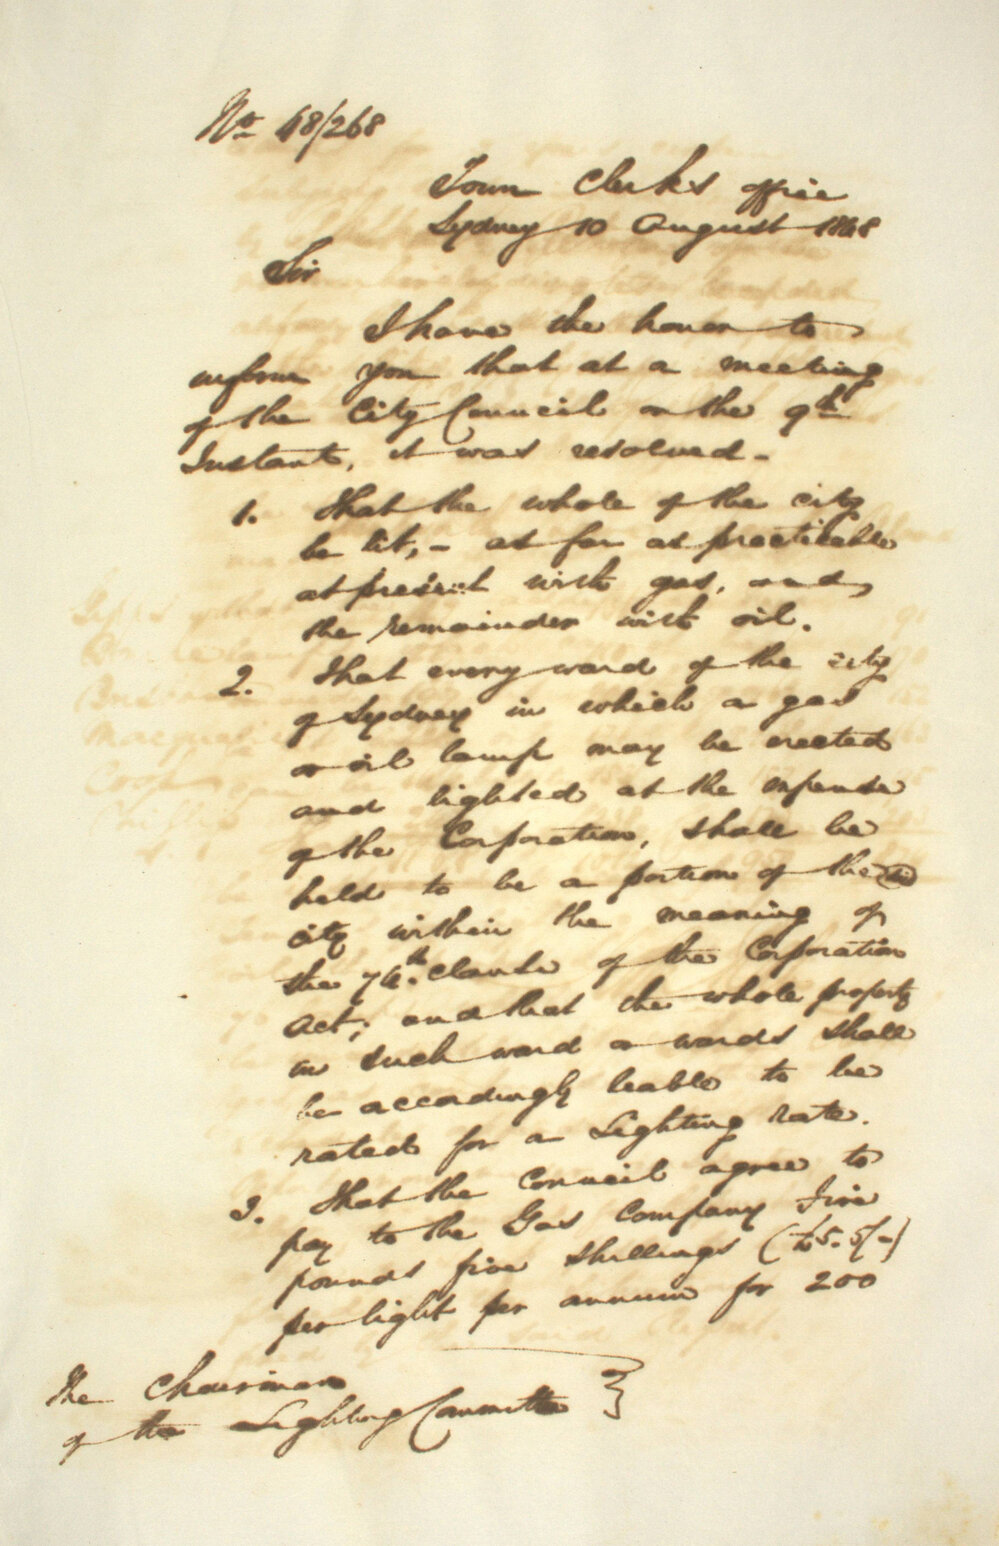 No 48/268
Town Clerk's office
Sydney 10 August 1848
Sir
I have the honor to
inform you that at a meeting
of the City Council on the 9th
Instant, it was resolved -
1. That the whole of the city
be lit, - as far as practicable
at present with gas, and
the remainder with oil.
2. That every ward of the city
of Sydney in which a gas
or oil lamp may be erected
and lighted at the expense
of the Corporation, shall be
held to be a portion of the
city within the meaning of
the 74th. Clause of the Corporation
Act; and that the whole property
in such ward or wards shall
be accordingly leable to be
rated for a Lighting rate.
3. That the Council agree to
pay to the Gas Company Five
pounds five shillings (£5. 5/-)
per light per annum for 200
The Chairman
of the Lighting Committee